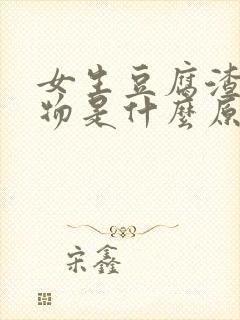 女生豆腐渣
物是什麼原
宋鑫